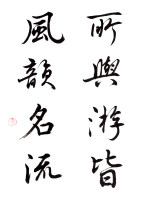 所與游皆
風韻名流